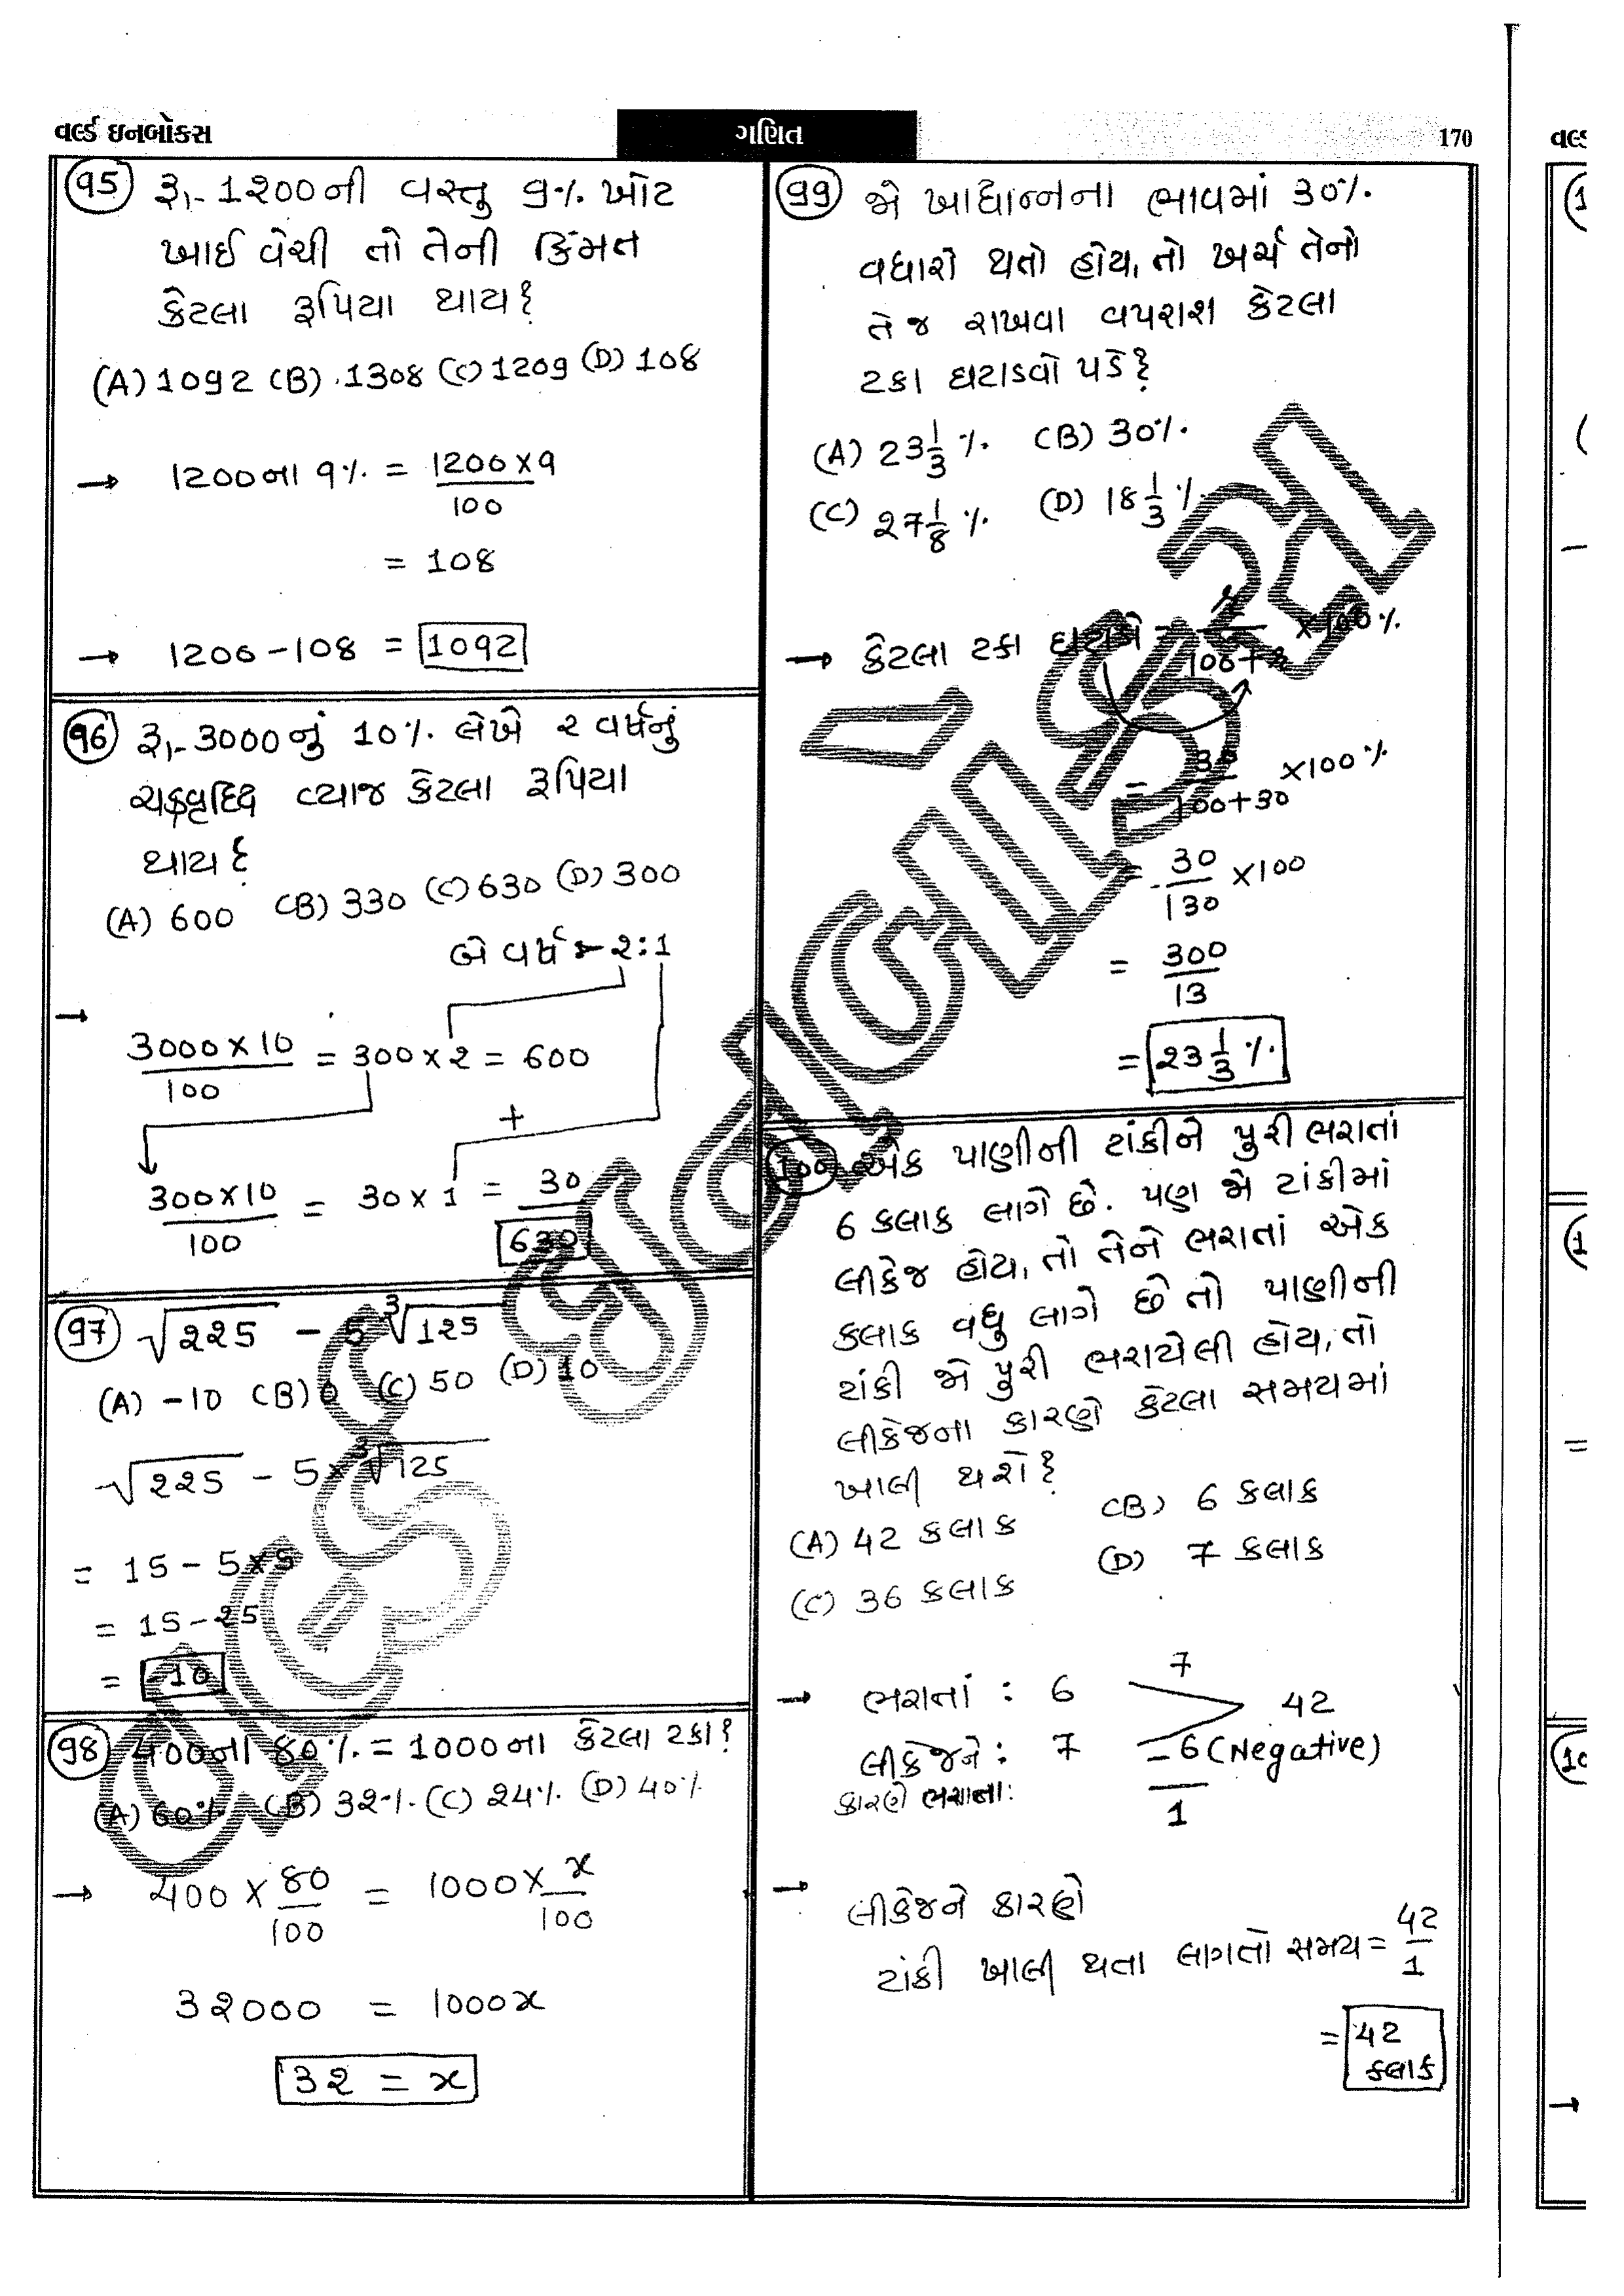 વર્લ્ડ ઇનબોક્સ
ગણિત
170
95 રૂ।.-1200ની વસ્તુ 9% ખોટ
ખાઈ વેચી તો તેની કિંમત
કેટલા રૂપિયા થાય?
(A) 1092 (B) 1308 (C) 1209 (D) 108
→ 1200ના 9% = 1200×9
100
= 108
→ 1200-108 = 1092
96 રૂ।.-3000નું 10% લેખે ૨ વર્ષનું
ચક્રવૃદ્ધિ વ્યાજ કેટલા રૂપિયા
થાય?
(A) 600 (B) 330 (C) 630 (D) 300
બે વર્ષ ➤ ૨:1
→
3000×10 = 300×2 = 600
100
+
300×10 = 30×1 = 30
100
630
97 √225 - 5 ∛125
(A) -10 (B) 0 (C) 50 (D) 10
√225 - 5×∛125
= 15-5×5
= 15-25
= -10
98 400ના 80% = 1000ના કેટલા ટકા?
(A) 60% (B) 32% (C) 24% (D) 40%
→ 400 × 80 = 1000 × x
100 100
32000 = 1000x
32 = x
99 જો ખાદ્યાન્નના ભાવમાં 30%
વધારો થતો હોય, તો ખર્ચ તેનો
તે જ રાખવા વપરાશ કેટલા
ટકા ઘટાડવો પડે?
(A) 23 1/3 % (B) 30%
(C) 27 1/8 % (D) 18 1/3 %
→ કેટલા ટકા ઘટાડો = x ×100%
100+x
= 30 ×100%
100+30
= 30 ×100
130
= 300
13
= 23 1/3 %
100 એક પાણીની ટાંકીને પુરી ભરાતાં
6 કલાક લાગે છે. પણ જો ટાંકીમાં
લીકેજ હોય, તો તેને ભરાતાં એક
કલાક વધુ લાગે છે તો પાણીની
ટાંકી જો પુરી ભરાયેલી હોય, તો
લીકેજના કારણે કેટલા સમયમાં
ખાલી થશે?
(A) 42 કલાક (B) 6 કલાક
(C) 36 કલાક (D) 7 કલાક
→ ભરાતાં : 6 7 42
લીકેજને : 7 -6 (Negative)
કારણે ભરાતા: 1
→ લીકેજને કારણે
ટાંકી ખાલી થતા લાગતો સમય = 42
1
= 42
કલાક
વર્લ્ડ ઇનબોક્સ